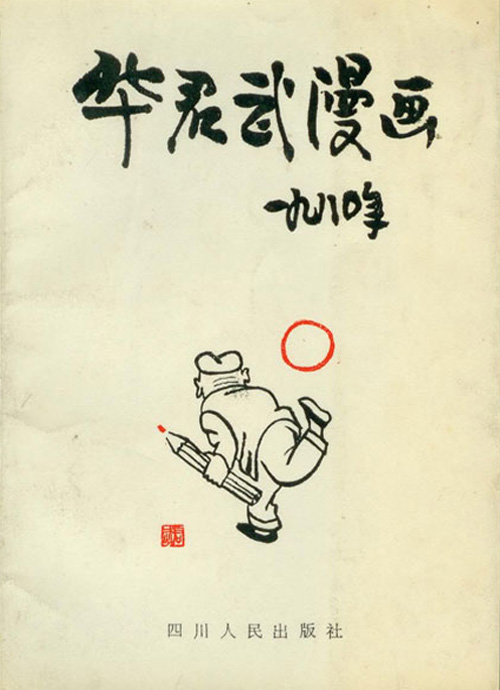 华君武漫画
一九八〇年
四川人民出版社